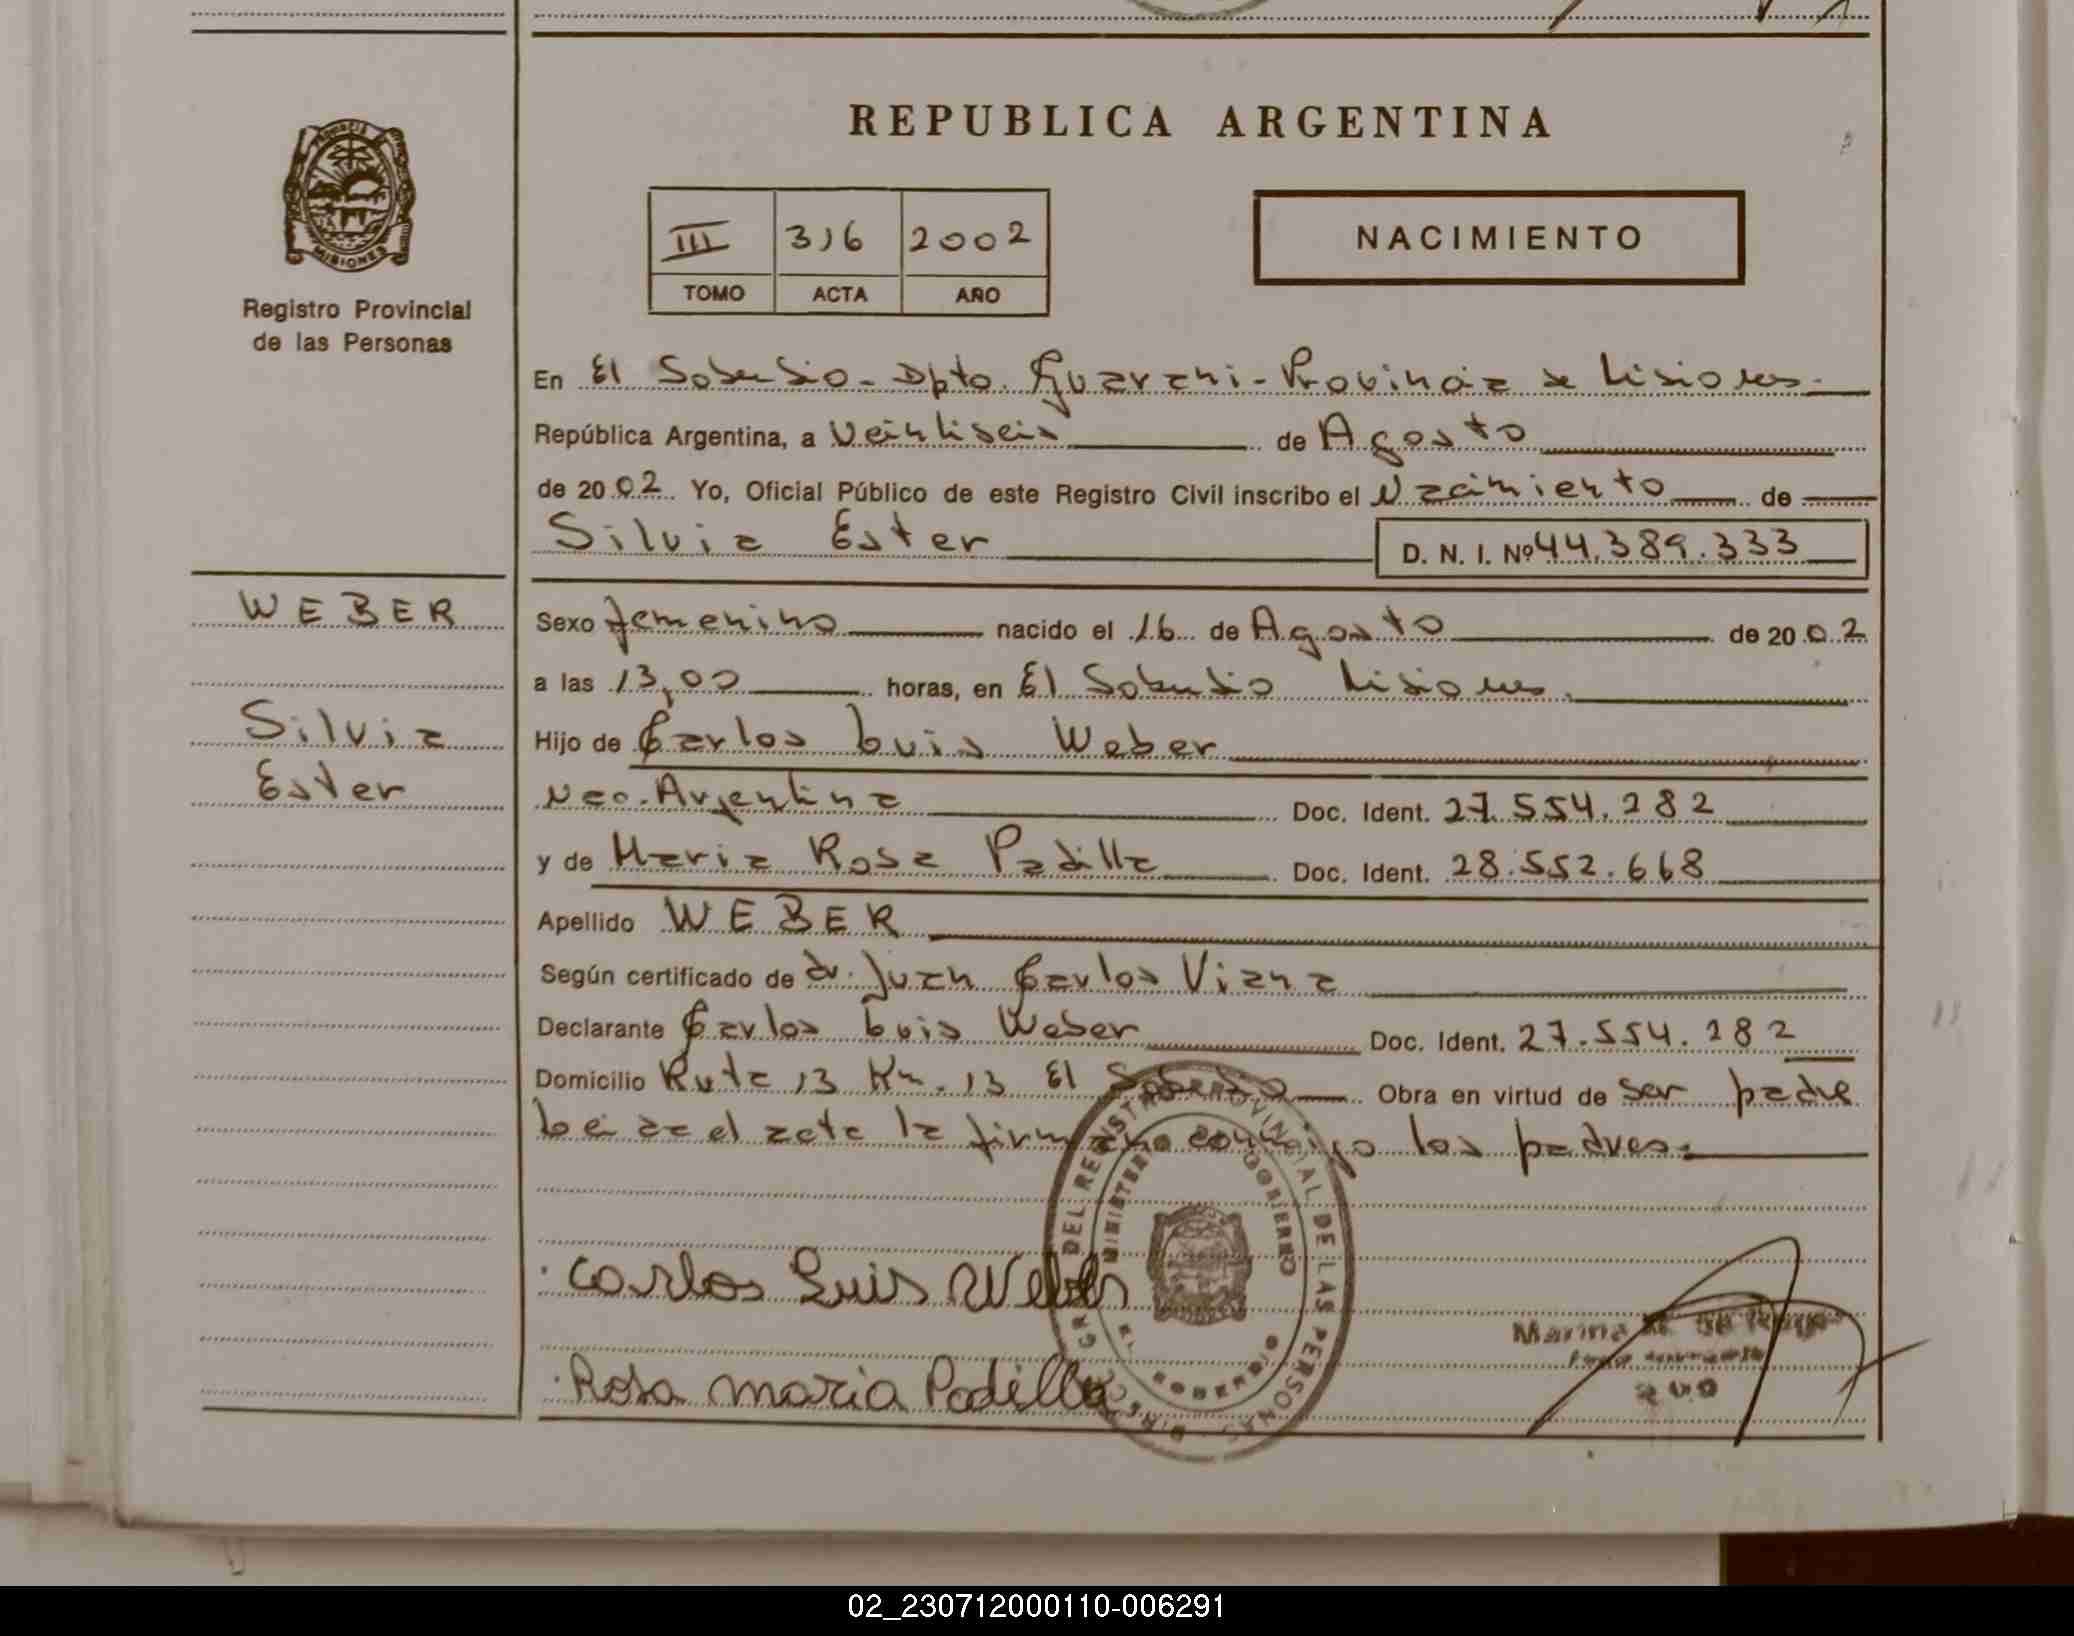 REPUBLICA ARGENTINA
MISIONES
Registro Provincial
de las Personas
III 316 2002
TOMO ACTA AÑO
NACIMIENTO
En El Soberbio - Dpto. Guarani - Provincia de Misiones.
República Argentina, a Veintiseis de Agosto
de 2002 Yo, Oficial Público de este Registro Civil inscribo el Nacimiento de
Silvia Ester D. N. I. Nº 44.389.333
WEBER
Silvia
Ester
Sexo femenino nacido el 16 de Agosto de 2002
a las 13,00 horas, en El Soberbio Misiones.
Hijo de Carlos Luis Weber
Nac. Argentina Doc. Ident. 27.554.282
y de Maria Rosa Padilla Doc. Ident. 28.552.668
Apellido WEBER
Según certificado de dr. Juan Carlos Viana
Declarante Carlos Luis Weber Doc. Ident. 27.554.282
Domicilio Ruta 13 Km. 13 El Soberbio Obra en virtud de ser padre
Leida el acta la firman conmigo los padres.
DEL REGISTRO PROVINCIAL DE LAS PERSONAS
MINISTERIO GOBIERNO
EL SOBERBIO
Carlos Luis Weber
Rosa maria Padilla
Marina
02_230712000110-006291